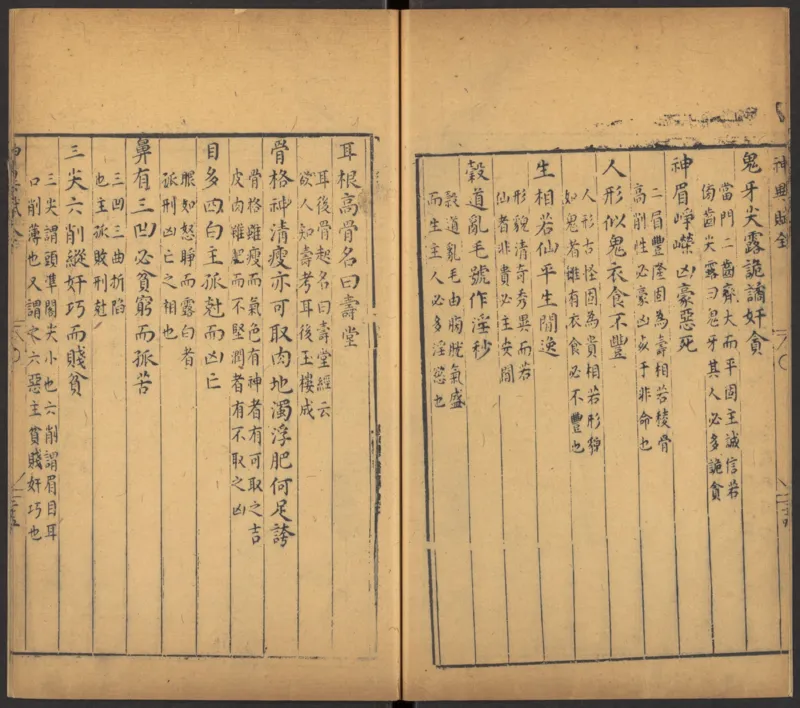 神異賦全
鬼牙尖露詭譎奸貪
當門二齒齊大而平固主誠信若
傍齒尖露曰鬼牙其人必多詭貪
神眉崢嶸凶豪惡死
二眉豐隆固為壽相若稜骨
高削性必豪凶豪亥于非命也
人形似鬼衣食不豐
人形古怪固為貴相若形貌
如鬼者雖有衣食必不豐也
生相若仙平生閒逸
形貌清奇秀異而若
仙者非貴必主安閒
穀道亂毛號作淫秒
穀道亂毛由膀胱氣盛
而生主人必多淫慾也
耳根高骨名曰壽堂
耳後骨起名曰壽堂經云
欲人知壽考耳後玉樓成
骨格神清瘦亦可取肉地濁浮肥何足誇
骨格雖瘦而氣色有神者有可取之吉
皮肉雖肥而不堅潤者有不取之凶
目多四白主孤尅而凶亡
眼如怒睜而露白者
孤刑凶亡之相也
鼻有三凹必貧窮而孤苦
三凹三曲折陷
也主孤貧刑尅
三尖六削縱奸巧而賤貧
三尖謂頭準閣尖小也六削謂眉目耳
口削薄也又謂之六惡主貧賤奸巧也